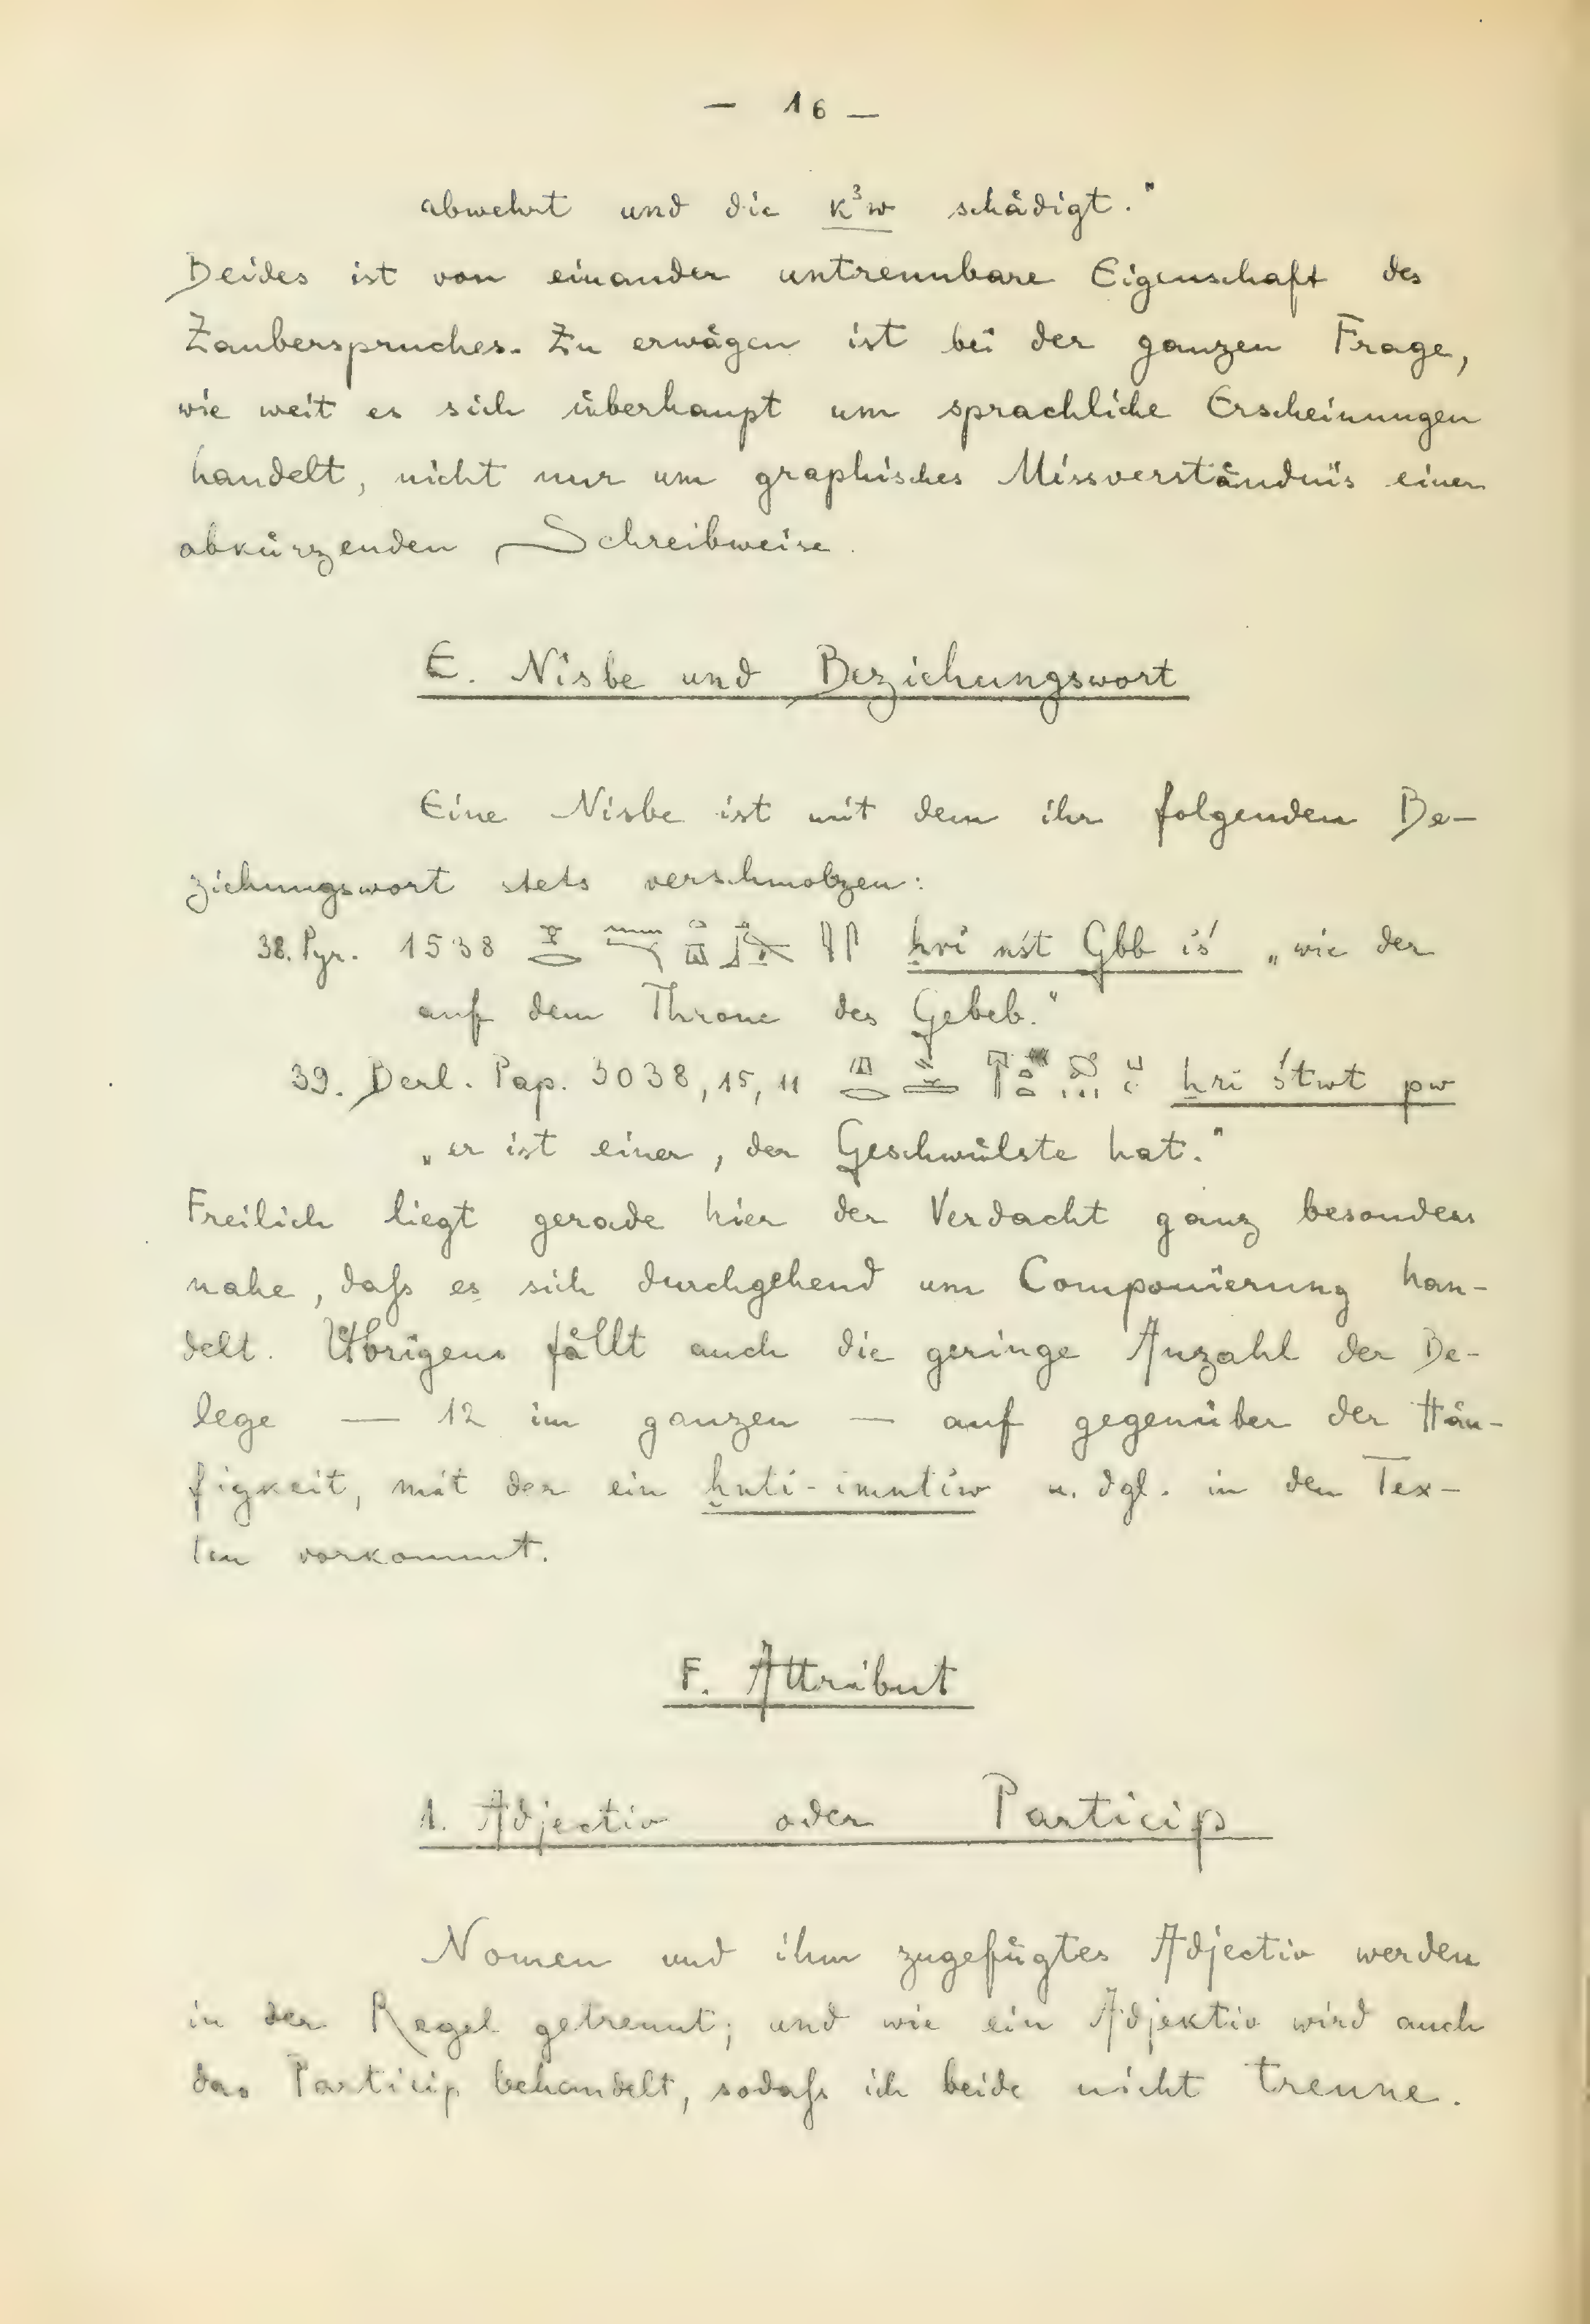 — 16 —
abwehrt und die kꜣw schädigt."
Beides ist von einander untrennbare Eigenschaft des
Zauberspruches. Zu erwägen ist bei der ganzen Frage,
wie weit es sich überhaupt um sprachliche Erscheinungen
handelt, nicht nur um graphisches Missverständnis einer
abkürzenden Schreibweise.
E. Nisbe und Beziehungswort
Eine Nisbe ist mit dem ihr folgenden Be-
ziehungswort stets verschmolzen:
38. Pyr. 1538 ḥri nśt Gbb iś „wie der
auf dem Throne des Gebeb."
39. Berl. Pap. 3038, 15, 11 ẖri śtwt pw
„er ist einer, der Geschwülste hat."
Freilich liegt gerade hier der Verdacht ganz besonders
nahe, daß es sich durchgehend um Componierung han-
delt. Übrigens fällt auch die geringe Anzahl der Be-
lege — 12 im ganzen — auf gegenüber der Häu-
figkeit, mit der ein ḫnti-imntiw u. dgl. in den Tex-
ten vorkommt.
F. Attribut
1. Adjectiv oder Particip
Nomen und ihm zugefügtes Adjectiv werden
in der Regel getrennt; und wie ein Adjektiv wird auch
das Particip behandelt, sodaß ich beide nicht trenne.